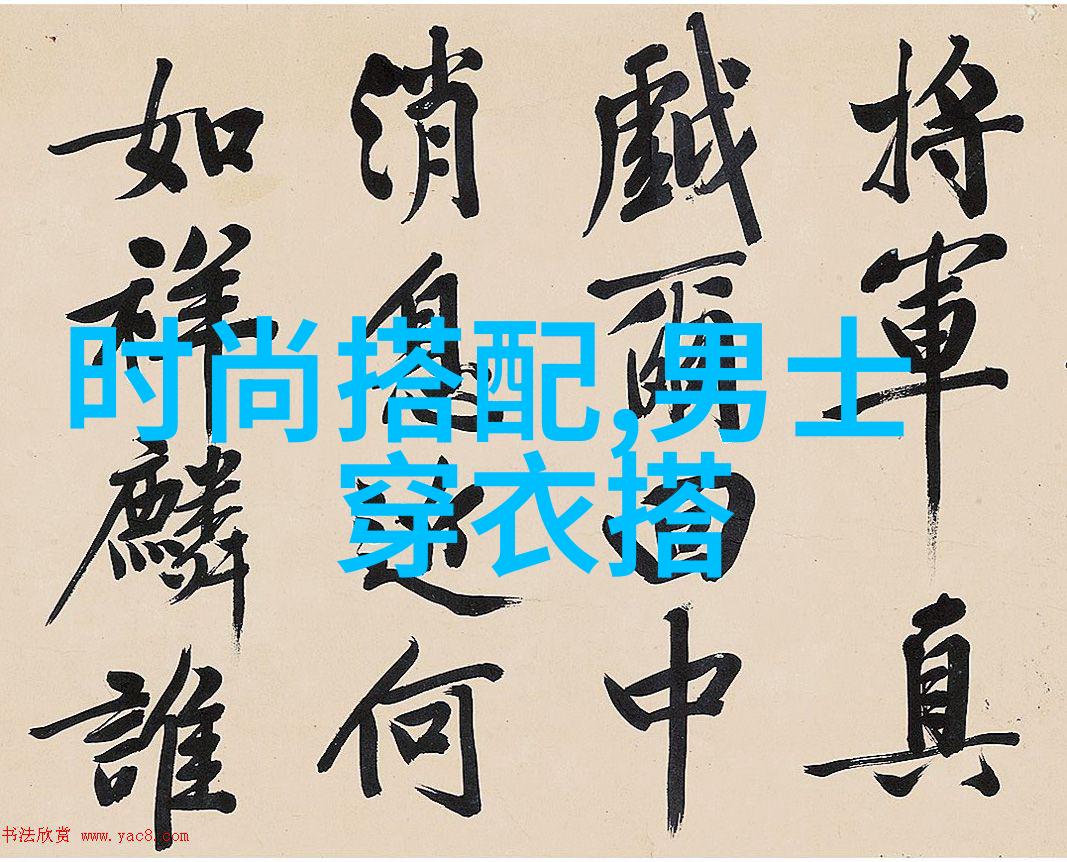 將軍真
戲爾中
消息何
如祥麟誰
时尚搭配,男士
穿衣搭
书法欣赏 www.yac8.com